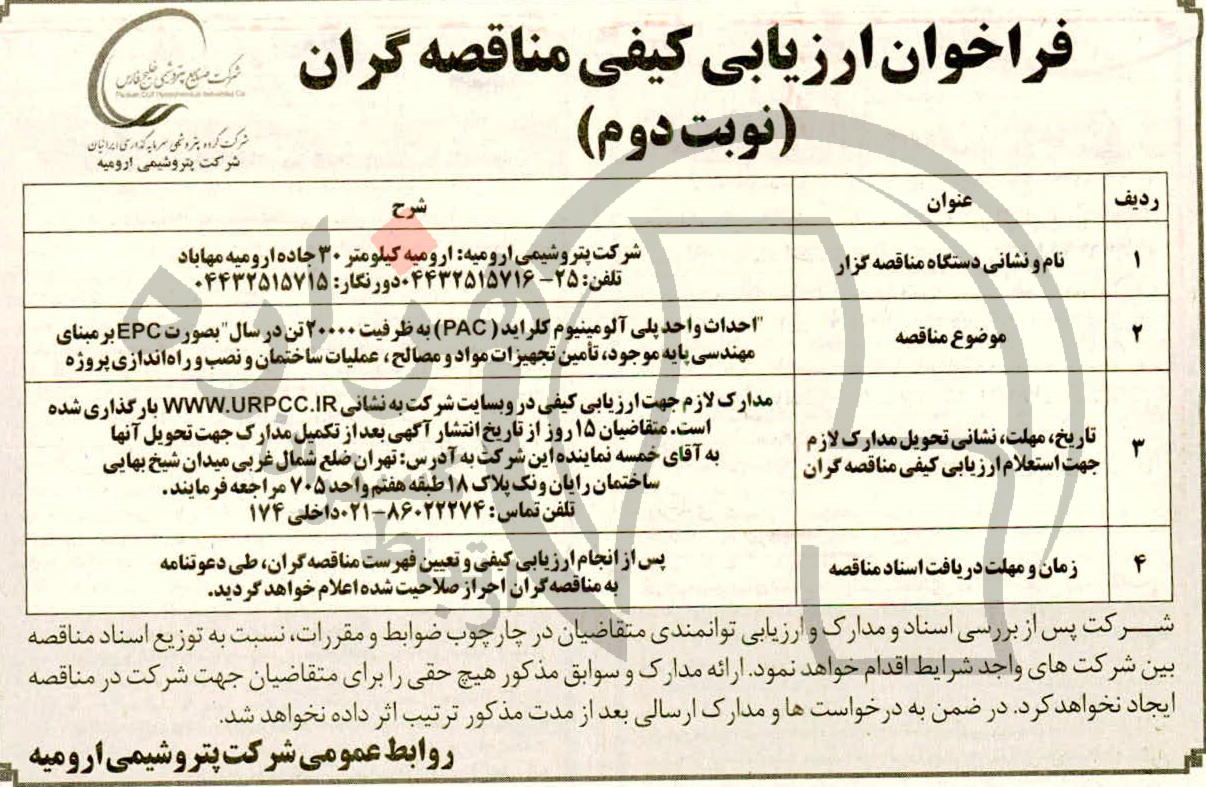 فراخوان ارزیابی کیفی مناقصه گران
(نوبت دوم)
شرکت صنایع پتروشیمی خلیج فارس
شرکت گروه پتروشیمی سرمایه گذاری ایرانیان
شرکت پتروشیمی ارومیه
ردیف عنوان شرح
۱ نام و نشانی دستگاه مناقصه گزار
شرکت پتروشیمی ارومیه: ارومیه کیلومتر ۳۰ جاده ارومیه مهاباد
تلفن: ۲۵- ۰۴۴۳۲۵۱۵۷۱۶ دورنگار: ۰۴۴۳۲۵۱۵۷۱۵
۲ موضوع مناقصه
"احداث واحد پلی آلومینیوم کلراید (PAC) به ظرفیت ۲۰۰۰۰ تن در سال" بصورت EPC بر مبنای
مهندسی پایه موجود، تأمین تجهیزات مواد و مصالح، عملیات ساختمان و نصب و راه اندازی پروژه
۳ تاریخ، مهلت، نشانی تحویل مدارک لازم
جهت استعلام ارزیابی کیفی مناقصه گران
مدارک لازم جهت ارزیابی کیفی در وبسایت شرکت به نشانی WWW.URPCC.IR بارگذاری شده
است. متقاضیان ۱۵ روز از تاریخ انتشار آگهی بعد از تکمیل مدارک جهت تحویل آنها
به آقای خمسه نماینده این شرکت به آدرس: تهران ضلع شمال غربی میدان شیخ بهایی
ساختمان رایان ونک پلاک ۱۸ طبقه هفتم واحد ۷۰۵ مراجعه فرمایند.
تلفن تماس: ۸۶۰۲۲۲۷۴-۰۲۱ داخلی ۱۷۴
۴ زمان و مهلت دریافت اسناد مناقصه
پس از انجام ارزیابی کیفی و تعیین فهرست مناقصه گران، طی دعوتنامه
به مناقصه گران احراز صلاحیت شده اعلام خواهد گردید.
شرکت پس از بررسی اسناد و مدارک و ارزیابی توانمندی متقاضیان در چارچوب ضوابط و مقررات، نسبت به توزیع اسناد مناقصه
بین شرکت های واجد شرایط اقدام خواهد نمود. ارائه مدارک و سوابق مذکور هیچ حقی را برای متقاضیان جهت شرکت در مناقصه
ایجاد نخواهد کرد. در ضمن به درخواست ها و مدارک ارسالی بعد از مدت مذکور ترتیب اثر داده نخواهد شد.
روابط عمومی شرکت پتروشیمی ارومیه